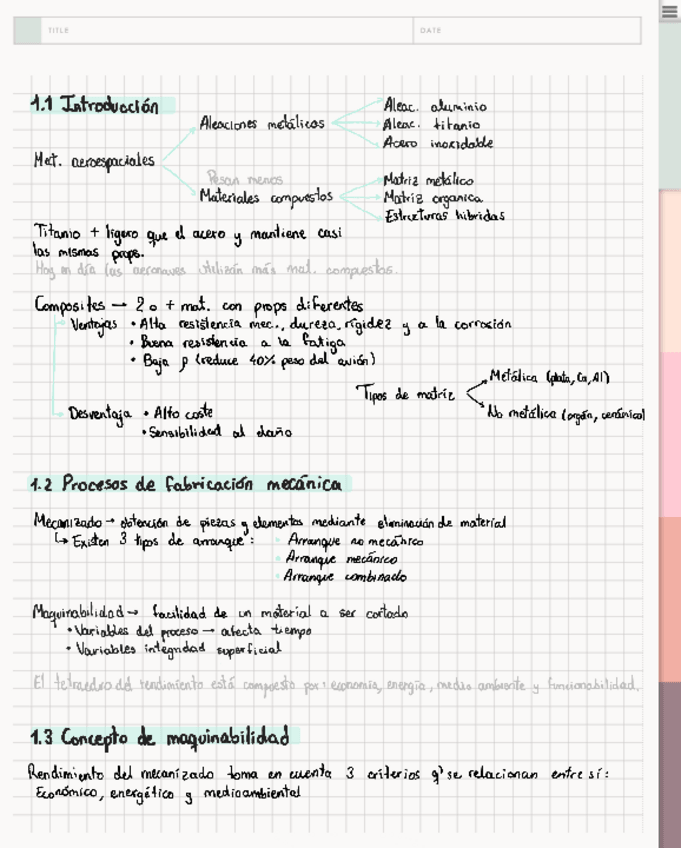 TITLE
DATE
1.1 Introducción
Met. aeroespaciales
Aleaciones metálicas
Aleac. aluminio
Aleac. titanio
Acero inoxidable
Pesan menos
Materiales compuestos
Matriz metálico
Matriz organica
Estructuras hibridas
Titanio + ligero que el acero y mantiene casi
las mismas props.
Hoy en día las aeronaves utilizan más mat. compuestos.
Composites → 2 o + mat. con props diferentes
Ventajas • Alta resistencia mec., dureza, rigidez y a la corrosión
• Buena resistencia a la fatiga
• Baja ρ (reduce 40% peso del avión)
Tipos de matriz
Metálica (plata, Cu, Al)
No metálica (orgán, cerámica)
Desventaja • Alto coste
• Sensibilidad al daño
1.2 Procesos de fabricación mecánica
Mecanizado → obtención de piezas y elementos mediante eliminación de material
↳ Existen 3 tipos de arranque: • Arranque no mecánico
• Arranque mecánico
• Arranque combinado
Maquinabilidad → facilidad de un material a ser cortado
• Variables del proceso → afecta tiempo
• Variables integridad superficial
El tetraedro del rendimiento está compuesto por: economía, energía, medio ambiente y funcionabilidad.
1.3 Concepto de maquinabilidad
Rendimiento del mecanizado toma en cuenta 3 criterios q' se relacionan entre sí:
Económico, energético y medioambiental